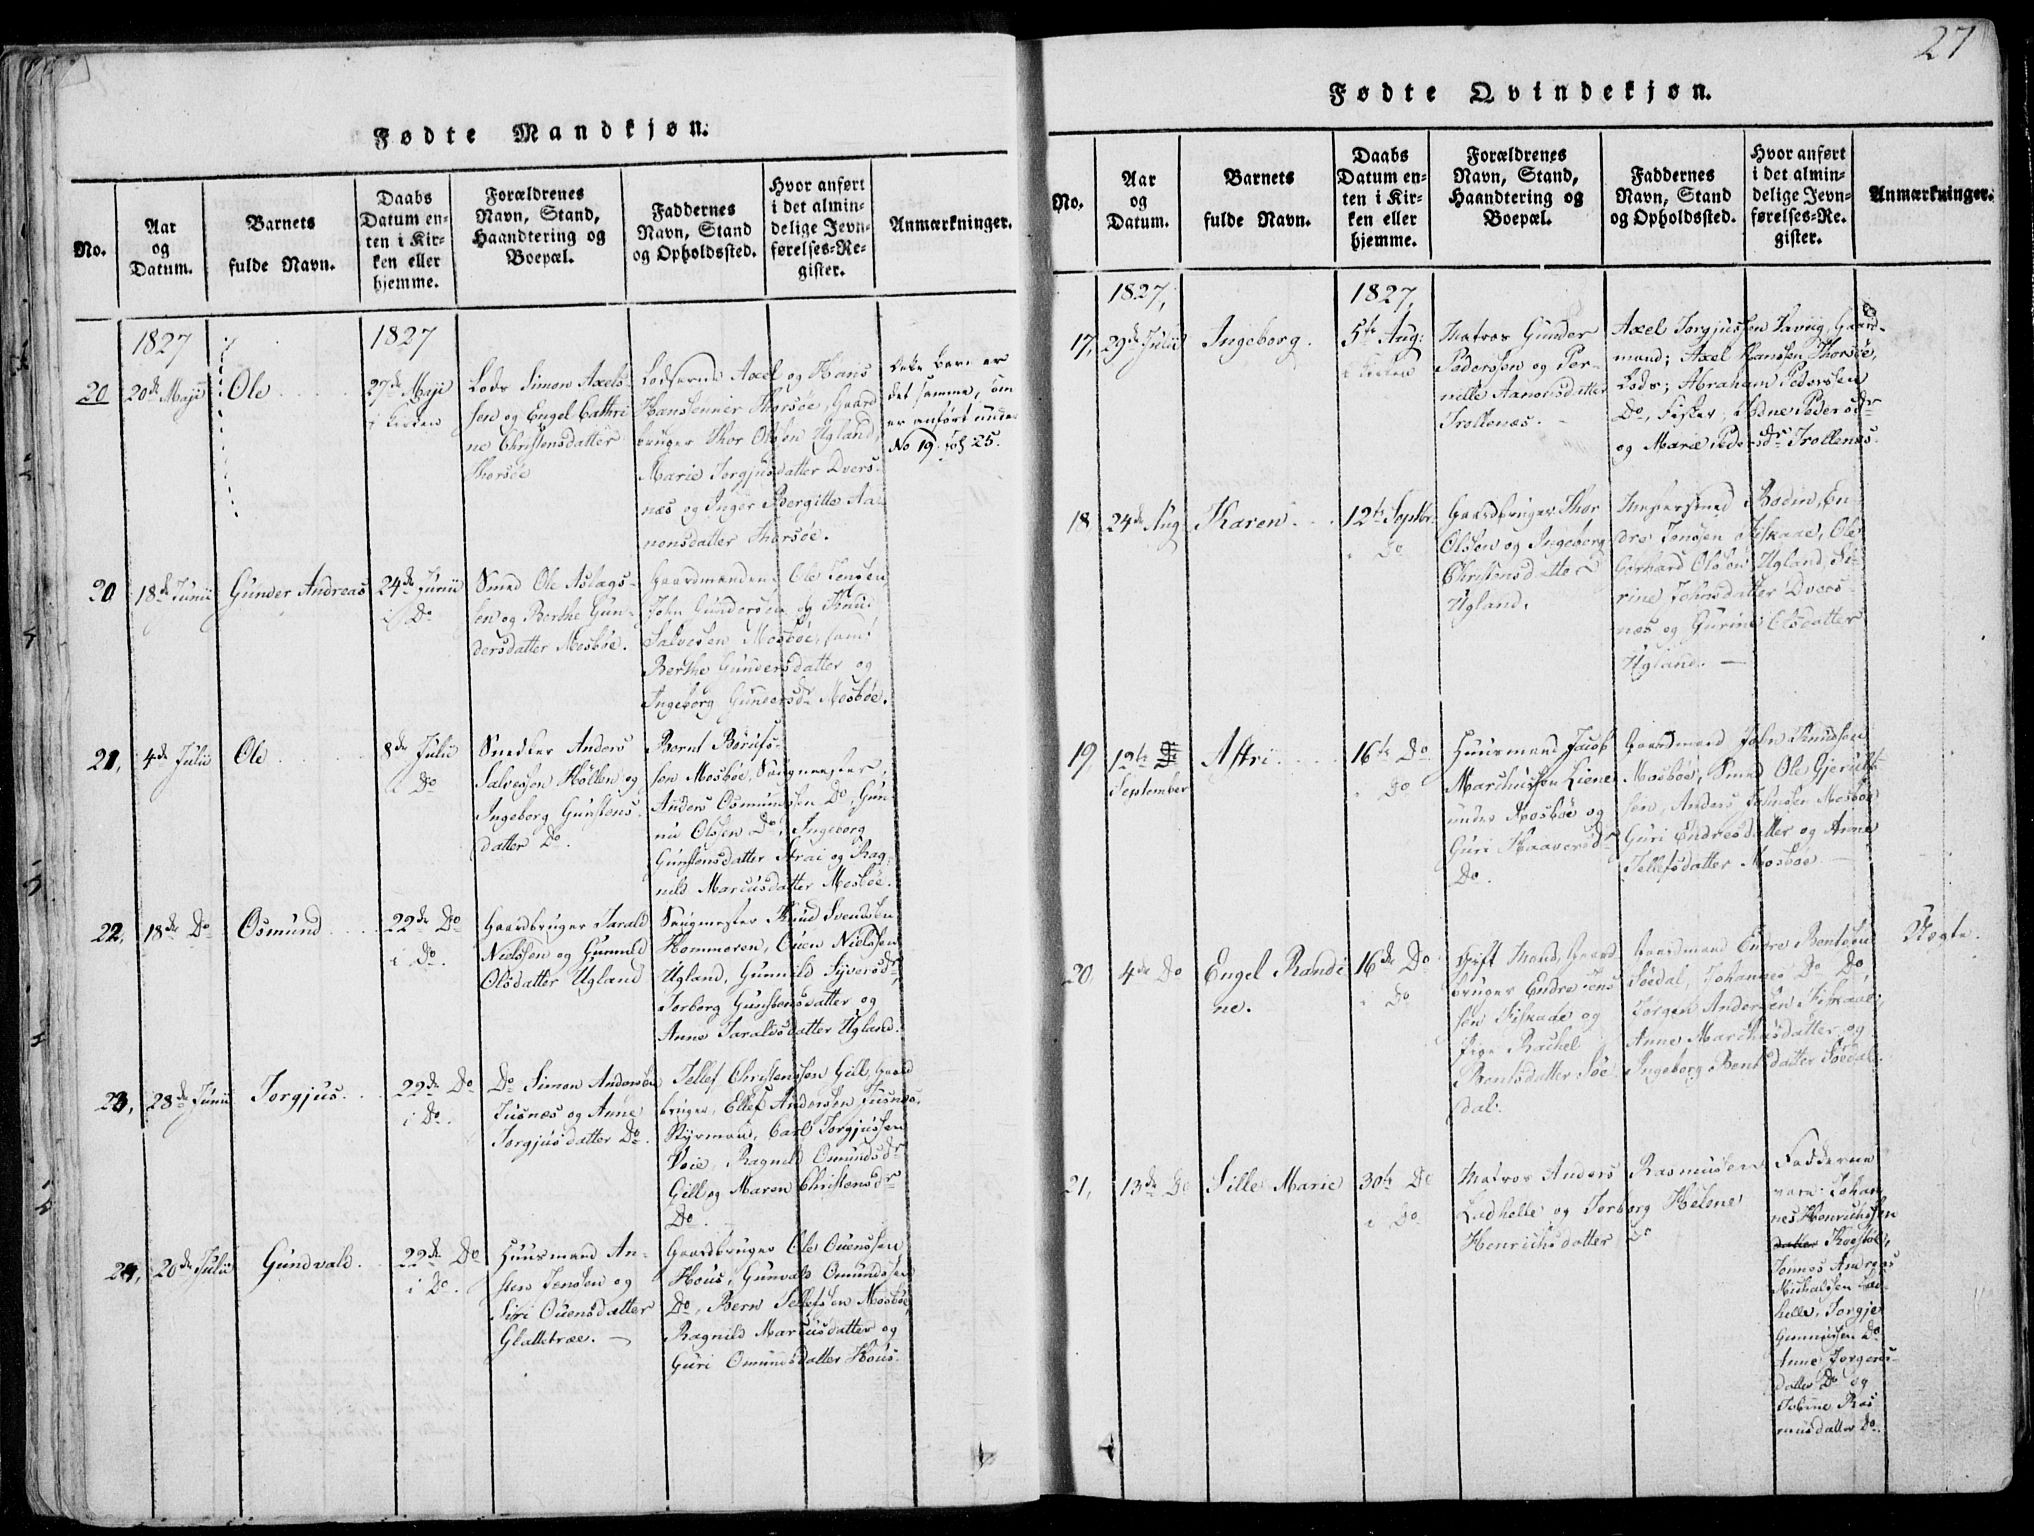 27
Fødte Mandkjøn.
No.
Aar
og
Datum.
Barnets
fulde Navn.
Daabs
Datum en-
ten i Kir-
ken eller
hjemme.
Forældrenes
Navn, Stand,
Haandtering og
Boepæl.
Faddernes
Navn, Stand
og Opholdssted.
Hvor anført
i det almin-
delige Jevn-
førelses-Re-
gister.
Anmærkninger.
1827
1827
20
20de Maji
Ole
27de Maji
i Kirken
Lods Simon Axels-
sen og Engel Cathri
ne Christensdatter
Thorsøe
Lodserne Axel og Hans
Hansenner Thorsøe, Gaard
bruger Thor Olsen Ugland,
Marie Jorgjusdatter Dvers-
næs og Inger Bergitte Aa-
nonsdatter Thorsøe.
Dette barn er
det samme, som
er anført under
No 19. fol 25.
20
18de Junii
Gunder Andreas
24de Junii
i Do
Smed Ole Aslags-
sen og Berthe Gun-
dersdatter Mosbøe.
Gaardmændene Ole Jensen,
John Gundersen og Knud
Salvesen Mosbøe, samt
Berthe Gundersdatter og
Ingeborg Gundersdr Mosbøe.
21,
4de Julii
Ole
8de Julii
i Do
Snedker Anders
Salvesen Høllen og
Ingeborg Gunstens-
datter Do.
Bernt Børufs-
sen Mosbøe, Saugmester,
Anders Osmundsen Do, Gun-
nu Olsen Do, Ingeborg
Gunstensdatter Strai og Rag-
nild Marcusdatter Mosbøe.
22,
18de Do
Osmund
22de Do
i Do.
Gaardbruger Tarald
Nielssen og Gunnild
Olsdatter Ugland
Saugmester Knud Svendsen
Hommeren, Ouen Nielssen
Ugland, Gunnild Syversdr,
Torborg Gunstensdatter og
Anne Taraldsdatter Ugland.
23,
28de Junii
Jorgjus
22de Do
i Do.
Do Simon Andersen
Tusnæs og Anne
Jorgjusdatter Do.
Tellef Christenssen Gill, Gaard
bruger, Ellef Andersen Tusnæs,
Styrmand, Carl Jorgjussen
Voie, Ragnild Omundsdr
Gill og Maren Christensdr
Do.
24,
20de Julii
Gundvald
22de Do
i Do.
Huusmand An-
sten Jensen og
Siri Ouensdatter
Glattetræe.
Gaardbruger Ole Ouenssen
Hous, Gunvald Omundssen
Do, Bern Tellefsen Mosbøe
Ragnild Marcusdatter og
Guri Omundsdatter Hous.
Fødte Qvindekjøn.
No.
Aar
og
Datum.
Barnets
fulde Navn.
Daabs
Datum en-
ten i Kir-
ken eller
hjemme.
Forældrenes
Navn, Stand,
Haandtering og
Boepæl.
Faddernes
Navn, Stand
og Opholdssted.
Hvor anført
i det almin-
delige Jevn-
førelses-Re-
gister.
Anmærkninger.
1827,
1827,
17,
29de Julii
Ingeborg.
5te Aug:
i Kirken
Matros Gunder
Pedersen og Per-
nille Aanonsdatter
Trollenæs.
Axel Jorgjussen Gaard-
mand; Axel Hansen Thorsøe,
Lods; Abraham Pedersen
Do, Fisker, Pedersdr
og Marie Pedersdr Trollenæs.
18
24de Aug
Karen
12te Septbr.
i Do
Gaardbruger Thor
Olsen og Ingeborg
Christensdatter
Ugland.
Bodin, En-
dre Jensen Fiskaae, Ole
Gerhard Olsen Ugland, Se-
rine Johnsdatter Dvers-
næs og Gurine Olsdatter
Ugland.
19,
12te
September
Astri
16te Do
i Do
Huusmand Jacob
Marchussen Liene
under Mosbøe og
Guri Haaversdr
Do.
Gaardmand John Knudsen
Mosbøe, Smed Ole Gjerulf-
sen, Anders Johnsen Mosbøe
Guri Endresdatter og Anne
Tellefsdatter Mosbøe
20,
4de Do
Engel Randi
ne.
16de Do
i Do
Gift Mand, Gaard
bruger Endre Jens
sen Fiskaae og
Pige Rachel
Bentsdatter Søe-
dal.
Gaardmand Endre Bentsen
Søedal, Johannes Do Do,
Jørgen Andersen Fiskaae,
Anne Marchusdatter og
Ingeborg Bentsdatter Søedal.
Uægte.
21,
13de Do
Sille Marie
30te Do
i Do
Matros Anders Rasmusen
Ladhelle og Torborg Helene
Henrichsdatter Do
Fadderne
vare: Johan-
nes Henrichsen
Andreas
Michalsen Lad-
helle, Jorgje
Gunnusen Do
Anne Jorgens-
datter Do og
Ras
musdatter Do.